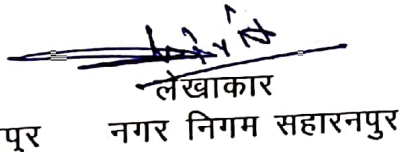 लेखाकार
पुर नगर निगम सहारनपुर